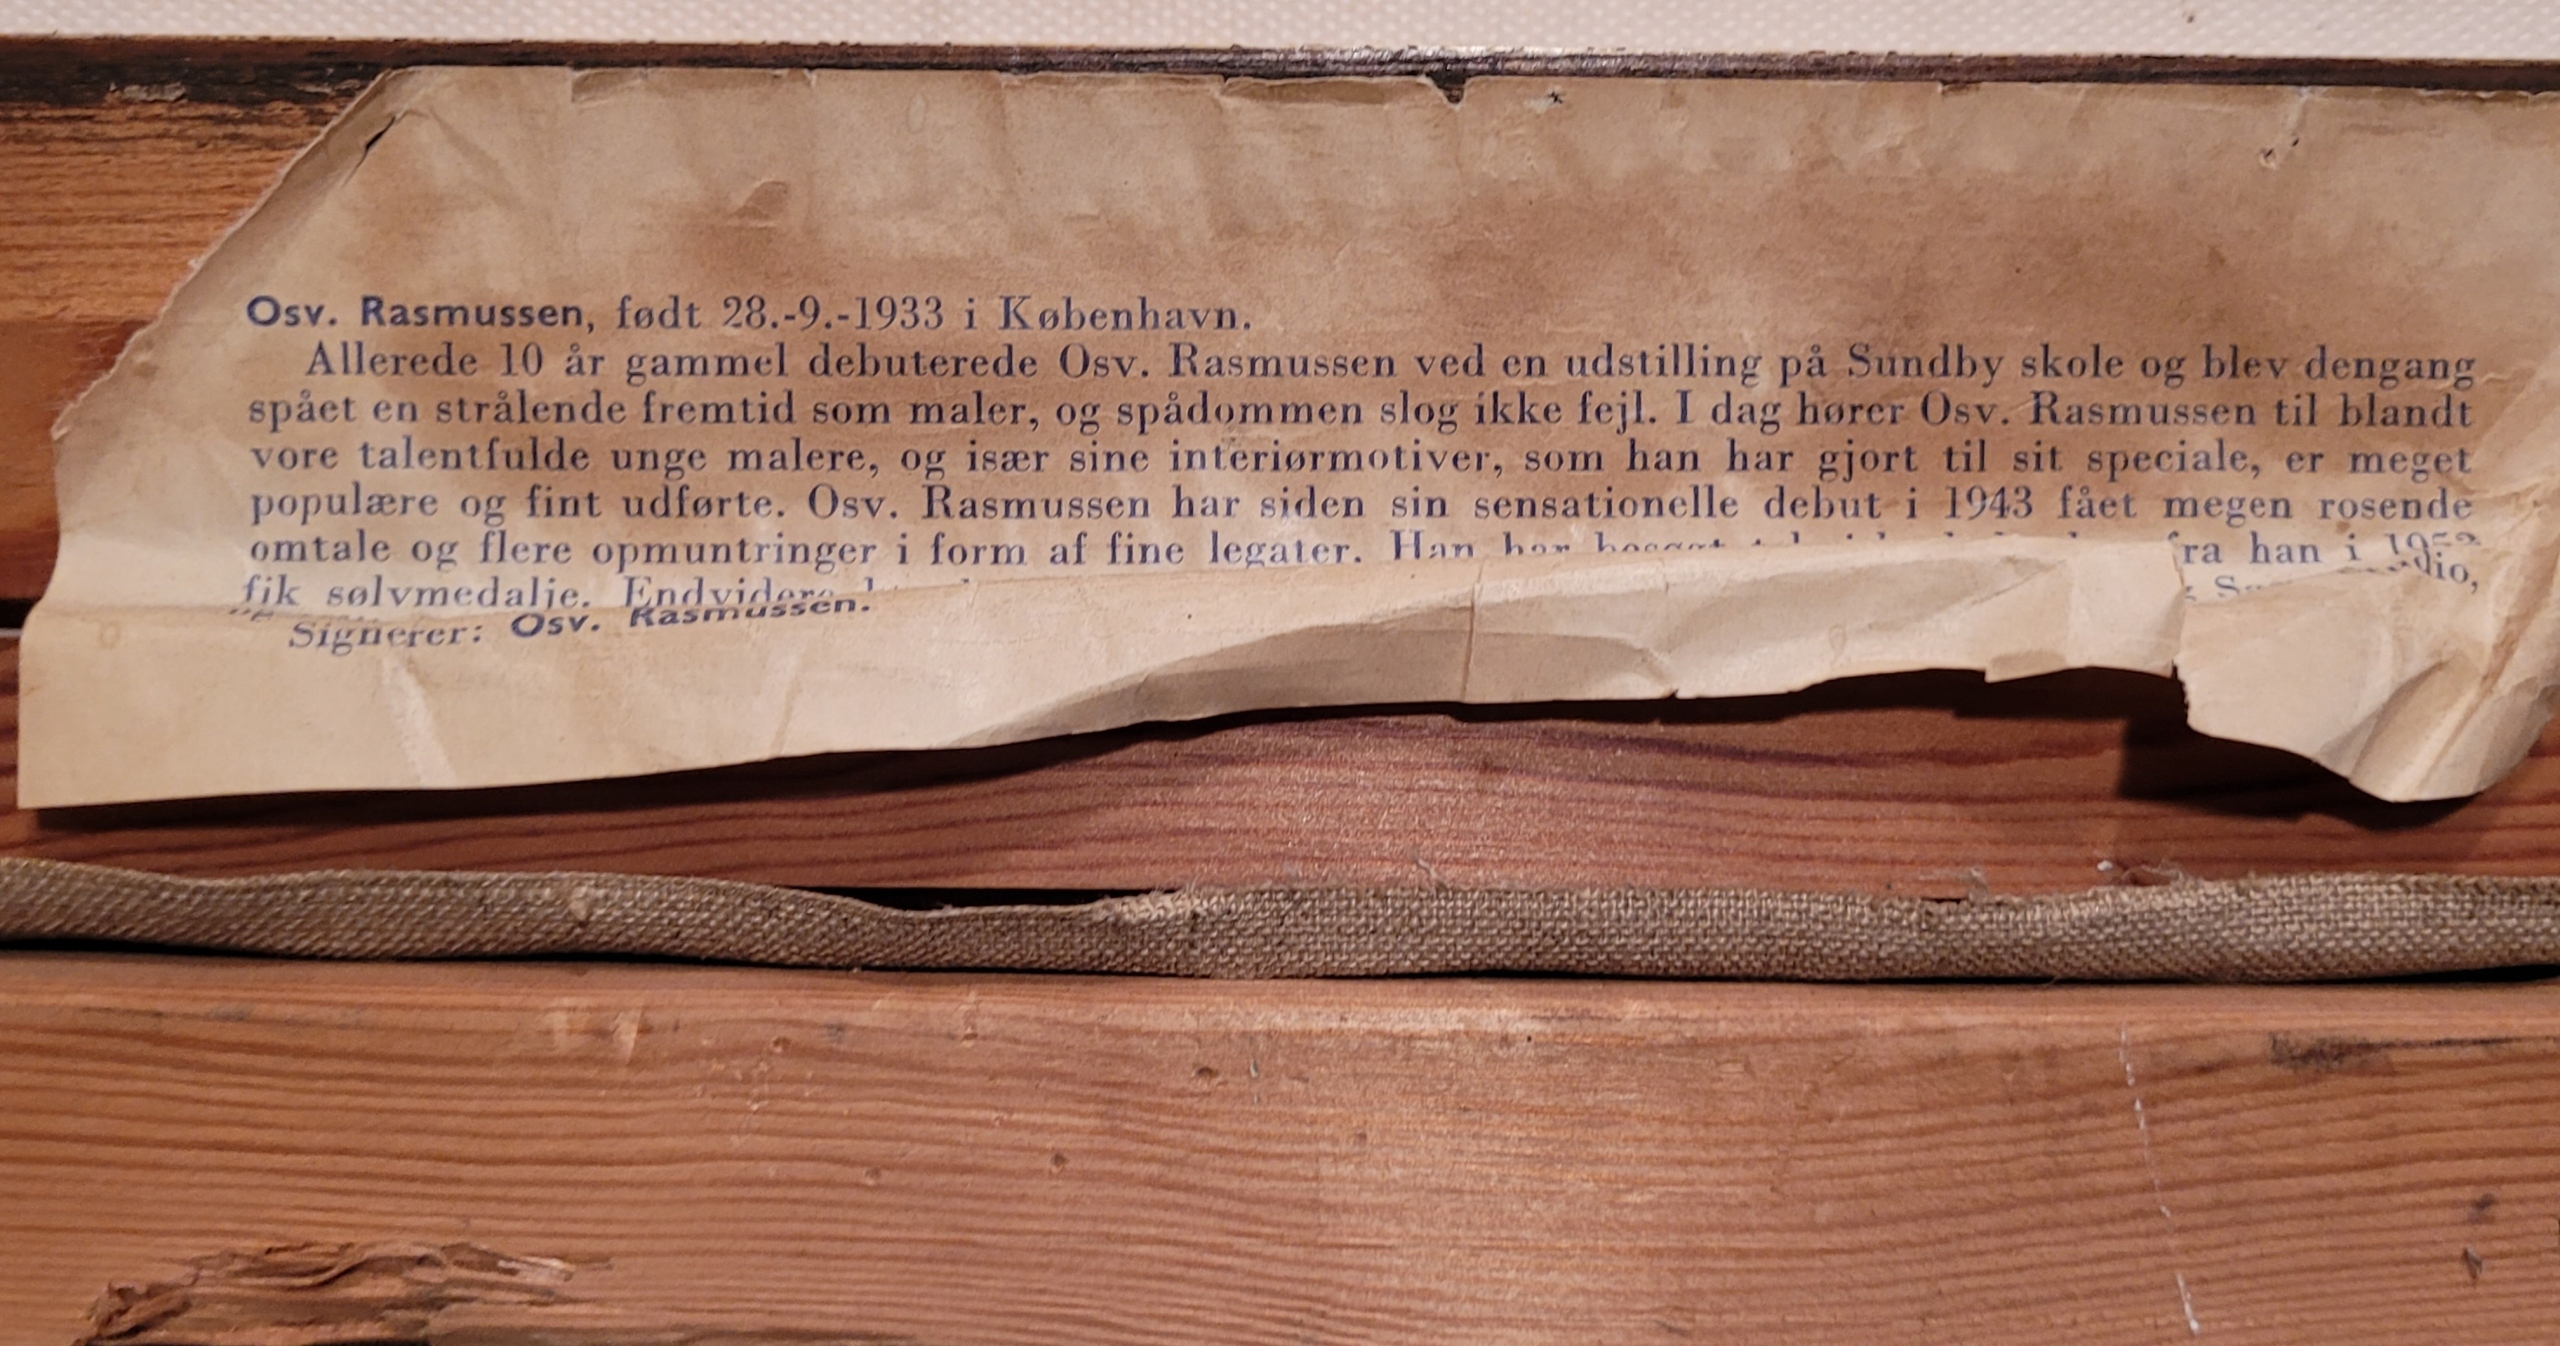 Osv. Rasmussen, født 28.-9.-1933 i København.
Allerede 10 år gammel debuterede Osv. Rasmussen ved en udstilling på Sundby skole og blev dengang
spået en strålende fremtid som maler, og spådommen slog ikke fejl. I dag hører Osv. Rasmussen til blandt
vore talentfulde unge malere, og især sine interiørmotiver, som han har gjort til sit speciale, er meget
populære og fint udførte. Osv. Rasmussen har siden sin sensationelle debut i 1943 fået megen rosende
omtale og flere opmuntringer i form af fine legater. Han har han i
fik sølvmedalje. Endvidere
Signerer: Osv. Rasmussen.